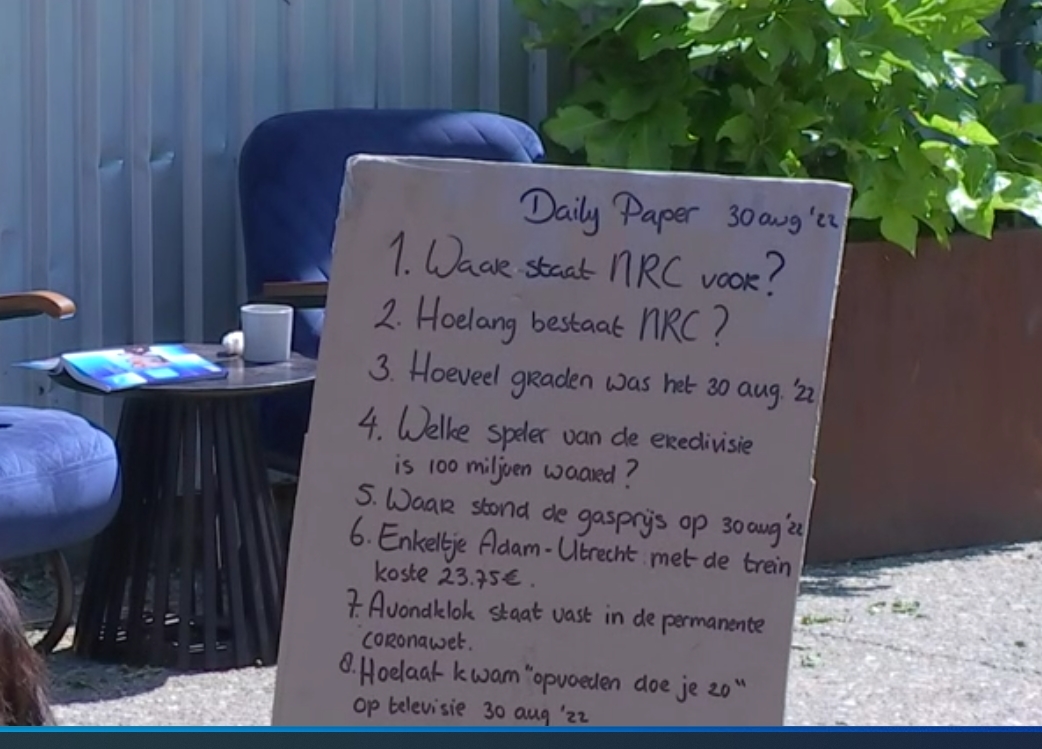 Daily Paper 30 aug '22
1. Waar staat NRC voor?
2. Hoelang bestaat NRC?
3. Hoeveel graden was het 30 aug. '22
4. Welke speler van de eredivisie
is 100 miljoen waard?
5. Waar stond de gasprijs op 30 aug '22
6. Enkeltje Adam-Utrecht met de trein
koste 23.75€.
7. Avondklok staat vast in de permanente
coronawet.
8. Hoelaat kwam "opvoeden doe je zo"
op televisie 30 aug '22